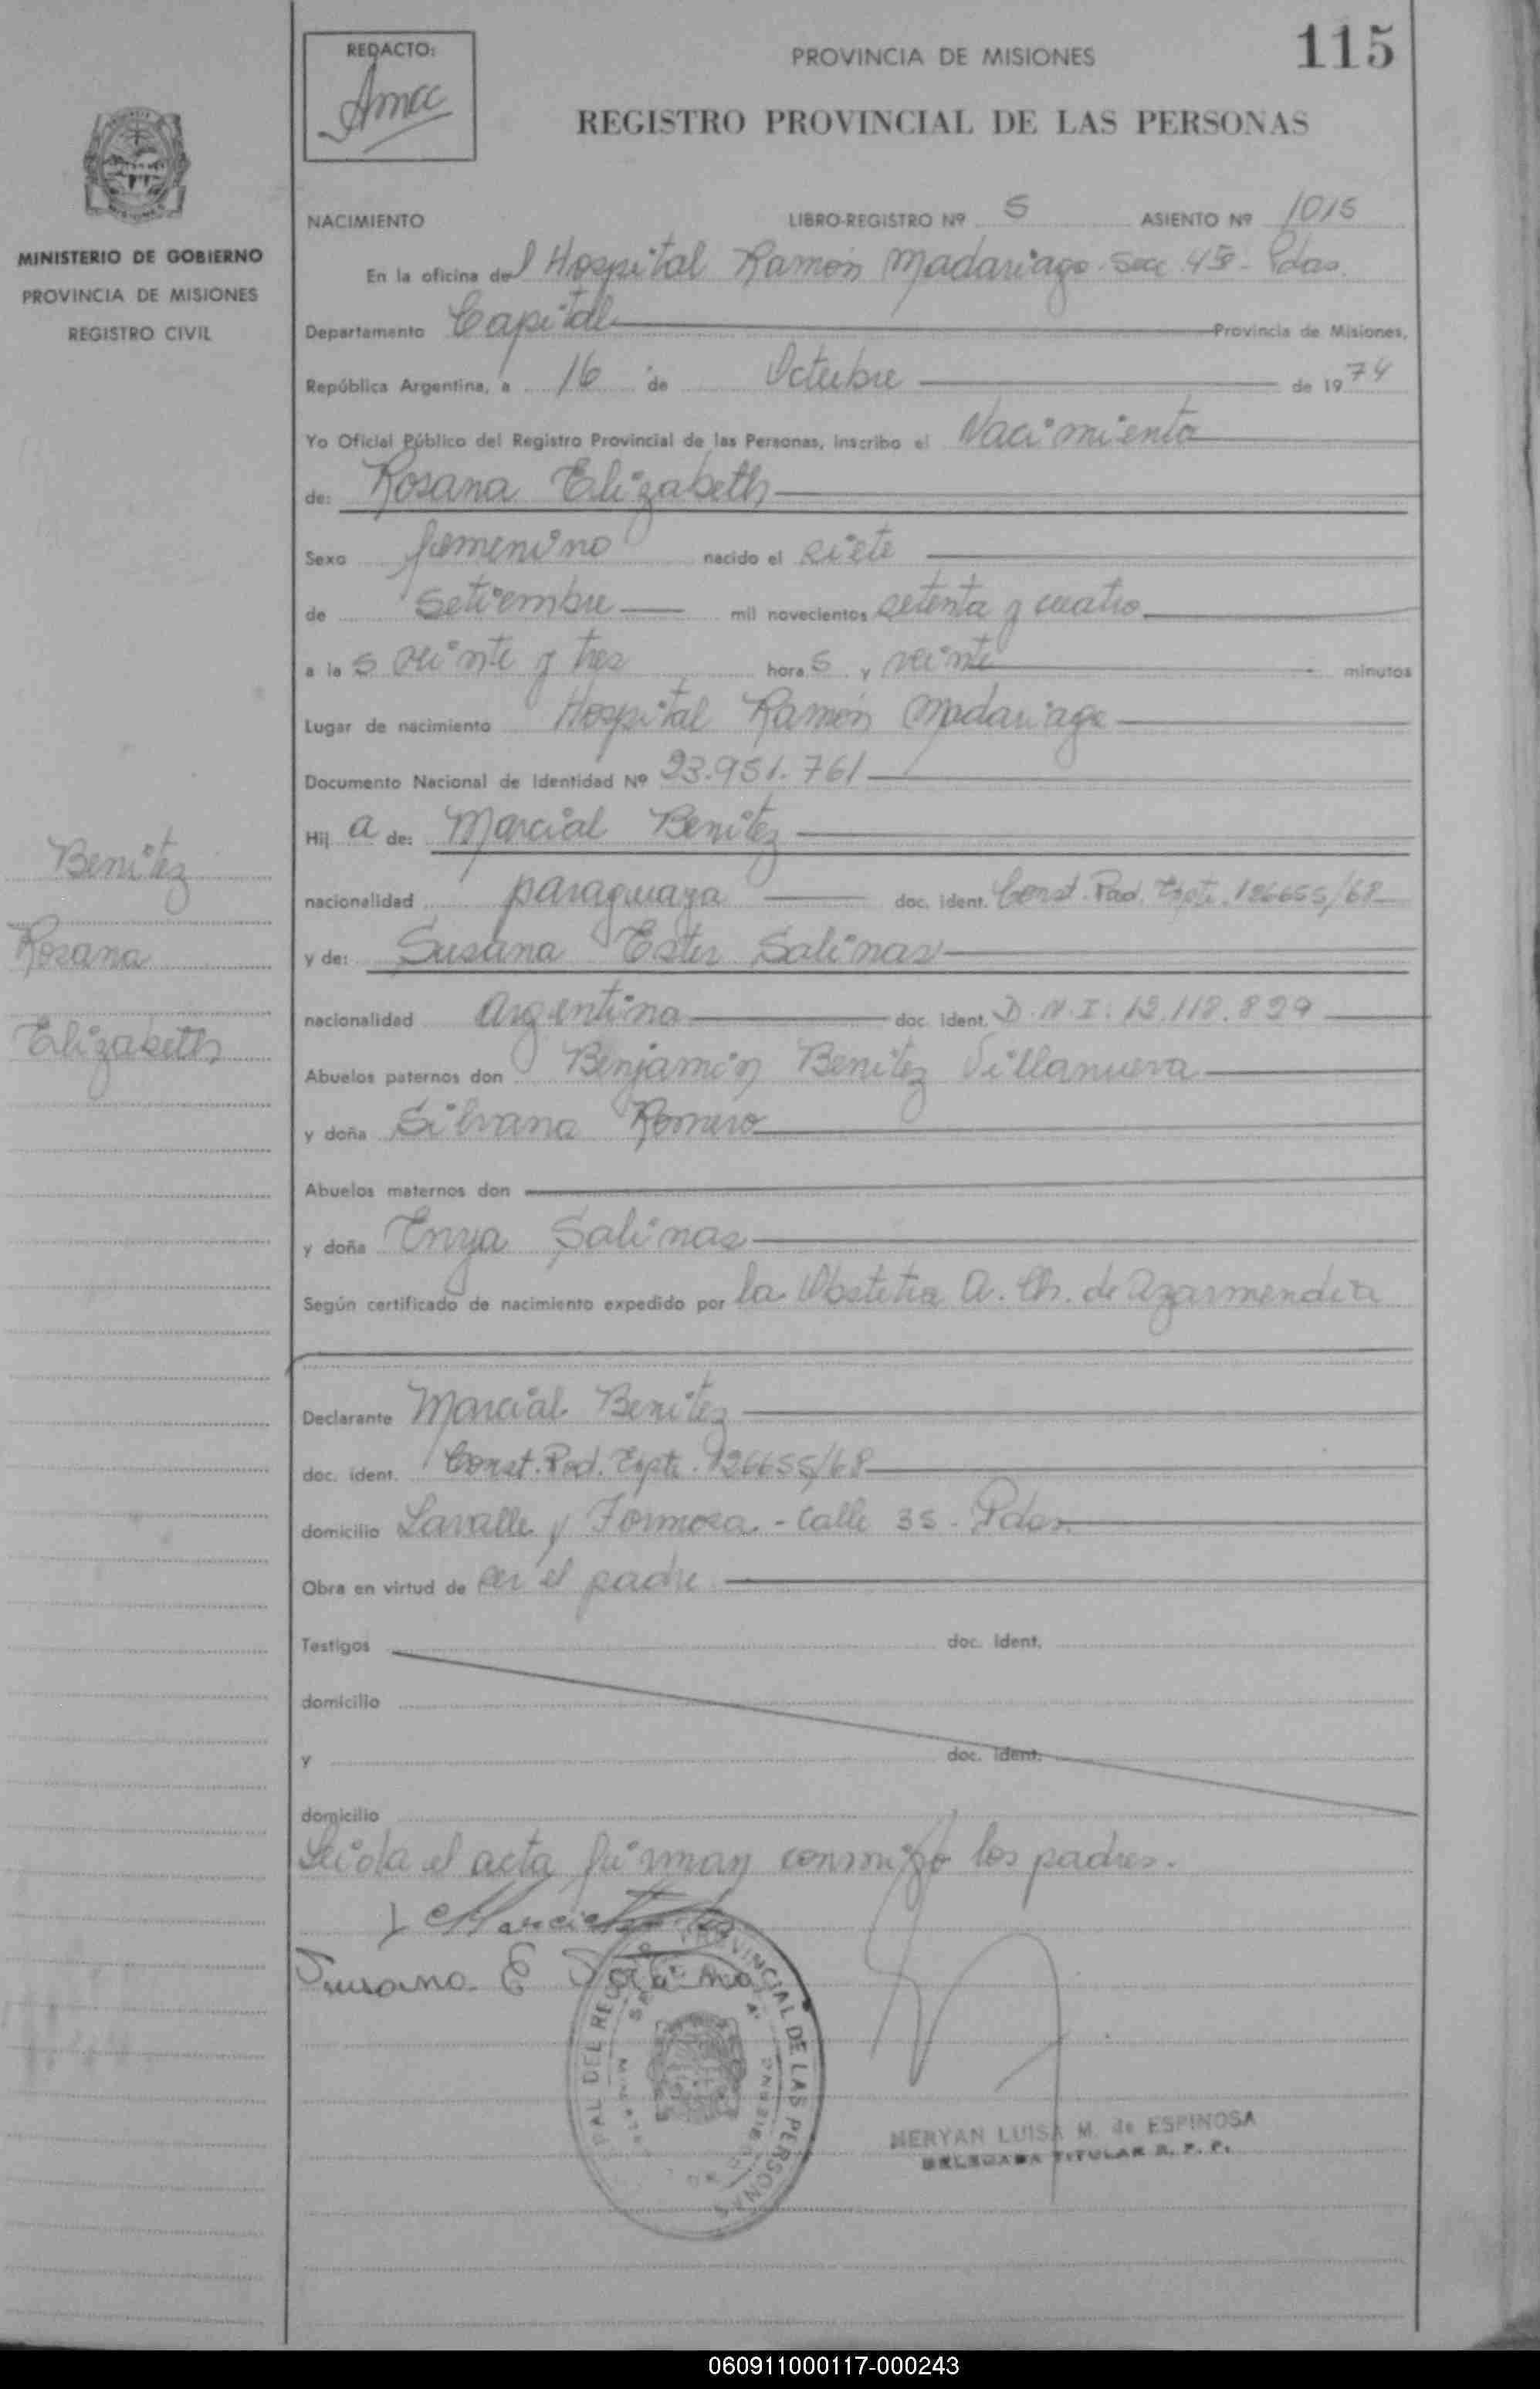 115
REDACTO:
PROVINCIA DE MISIONES
REGISTRO PROVINCIAL DE LAS PERSONAS
MINISTERIO DE GOBIERNO
PROVINCIA DE MISIONES
REGISTRO CIVIL
NACIMIENTO LIBRO-REGISTRO Nº 5 ASIENTO Nº 1015
En la oficina del Hospital Ramón Madariaga. Secc. 4ª - Pdas.
Departamento Capital Provincia de Misiones,
República Argentina, a 16 de Octubre de 1974
Yo Oficial Público del Registro Provincial de las Personas, inscribo el Nacimiento
de: Rosana Elizabeth
Sexo femenino nacido el siete
de Setiembre mil novecientos setenta y cuatro
a las veinte y tres horas y veinte minutos
Lugar de nacimiento Hospital Ramón Madariaga
Documento Nacional de Identidad Nº 23.951.761
Hija de: Marcial Benitez
nacionalidad paraguaya doc. ident. Const. Rad. Expte. 126655/68
y de: Susana Ester Salinas
nacionalidad Argentina doc. ident. D.N.I. 12.118.829
Abuelos paternos don Benjamín Benitez Villanueva
y doña Silvana Romero
Abuelos maternos don
y doña Enya Salinas
Según certificado de nacimiento expedido por la Obstetra A. Ch. de Azarmendia
Benitez
Rosana
Elizabeth
Declarante Marcial Benitez
doc. ident. Const. Rad. Expte. 126655/68
domicilio Lavalle y Formosa. - Calle 35 - Pdas.
Obra en virtud de ser el padre
Testigos doc. ident.
domicilio
y doc. ident.
domicilio
Leida el acta firman conmigo los padres.
Susana E Salinas
PROVINCIAL DE LAS PERSONAS
MERYAN LUISA M. de ESPINOSA
DELEGADA TITULAR R. P. P.
060911000117-000243